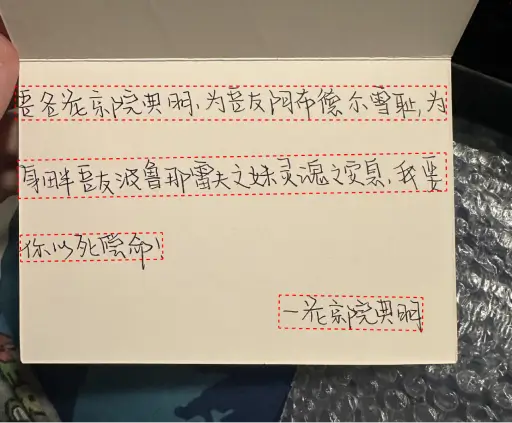 吾名花京院典明，为吾友阿布德尔雪耻，为
身畔吾友波鲁那雷夫之妹灵魂之安息，我要
你以死偿命！
—花京院典明